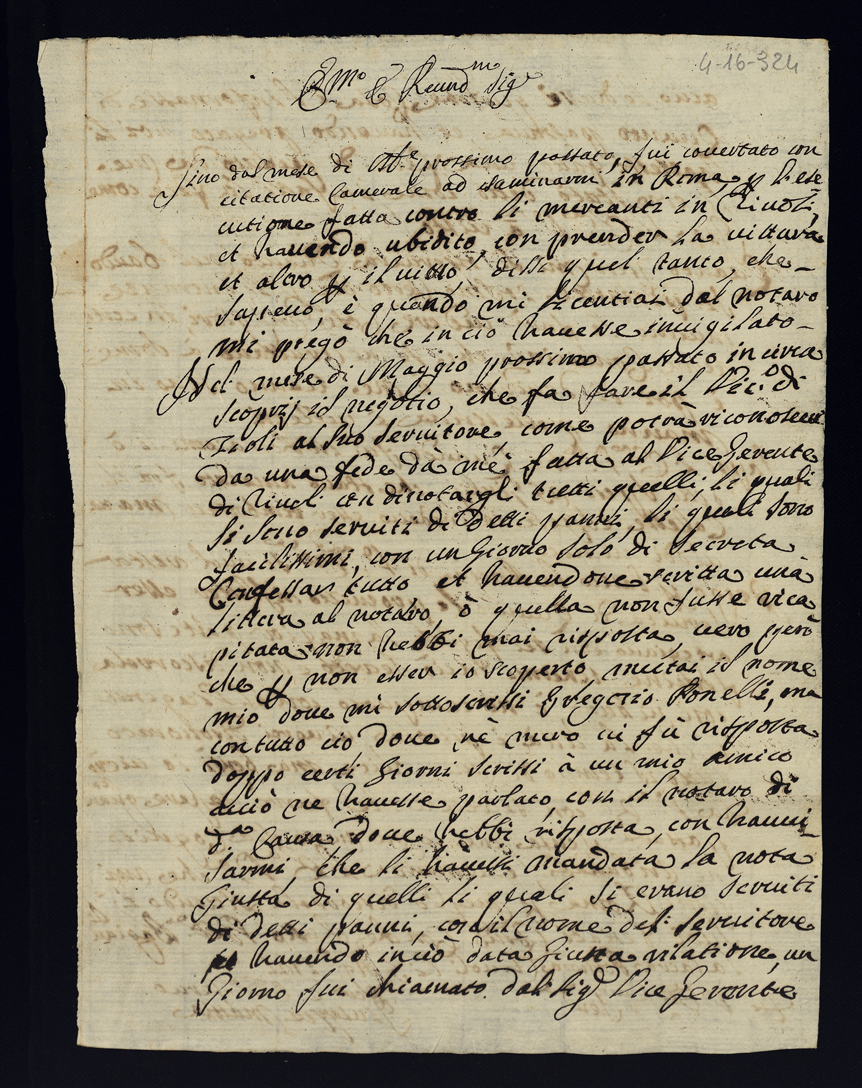 4-16-324
Emo e Reuerdmo Sigr
Sino dal mese di 7bre prossimo passato, fui couertato con
citatione Camerale ad esaminarmi in Roma p l'ese
cutione fatta contro li mercanti in Tiuoli,
et hauendo ubidito, con prender la uittura
et altro p il uitto, dissi quel tanto, che
sapeuo, e quando mi licentiai dal notaro
mi pregò che in ciò hauesse inuigilato
Nel mese di Maggio prossimo passato in circa
scoprij il negotio, che fa fare il Vico di
Tioli al suo seruitore, come potrà riconoscer
da una fede da me fatta al Vice Gerente
di Tiuoli con dinotargli tutti quelli, li quali
si sono seruiti di detti panni, li quali sono
facilissimi, con un Giorno solo di secreta
Confessar tutto et hauendone scritta una
littera al notaro, ò quella non fusse rica
pitata non hebbi mai risposta, uero però
che p non esser io scoperto mutai il nome
mio doue mi sottoscrissi Gregorio Ponelli, ma
con tutto ciò doue nè meno ui fù risposta
doppo certi Giorni scrissi à un mio amico
acciò ne hauesse parlato, con il notaro di
da Causa doue hebbi risposta, con haui-
sarmi, che li hauessi mandata la nota
giusta di quelli li quali si erano seruiti
di detti panni, con il nome del seruitore
et hauendo in ciò data giusta relatione, un
Giorno fui chiamato dal Sigr Vice Gerente